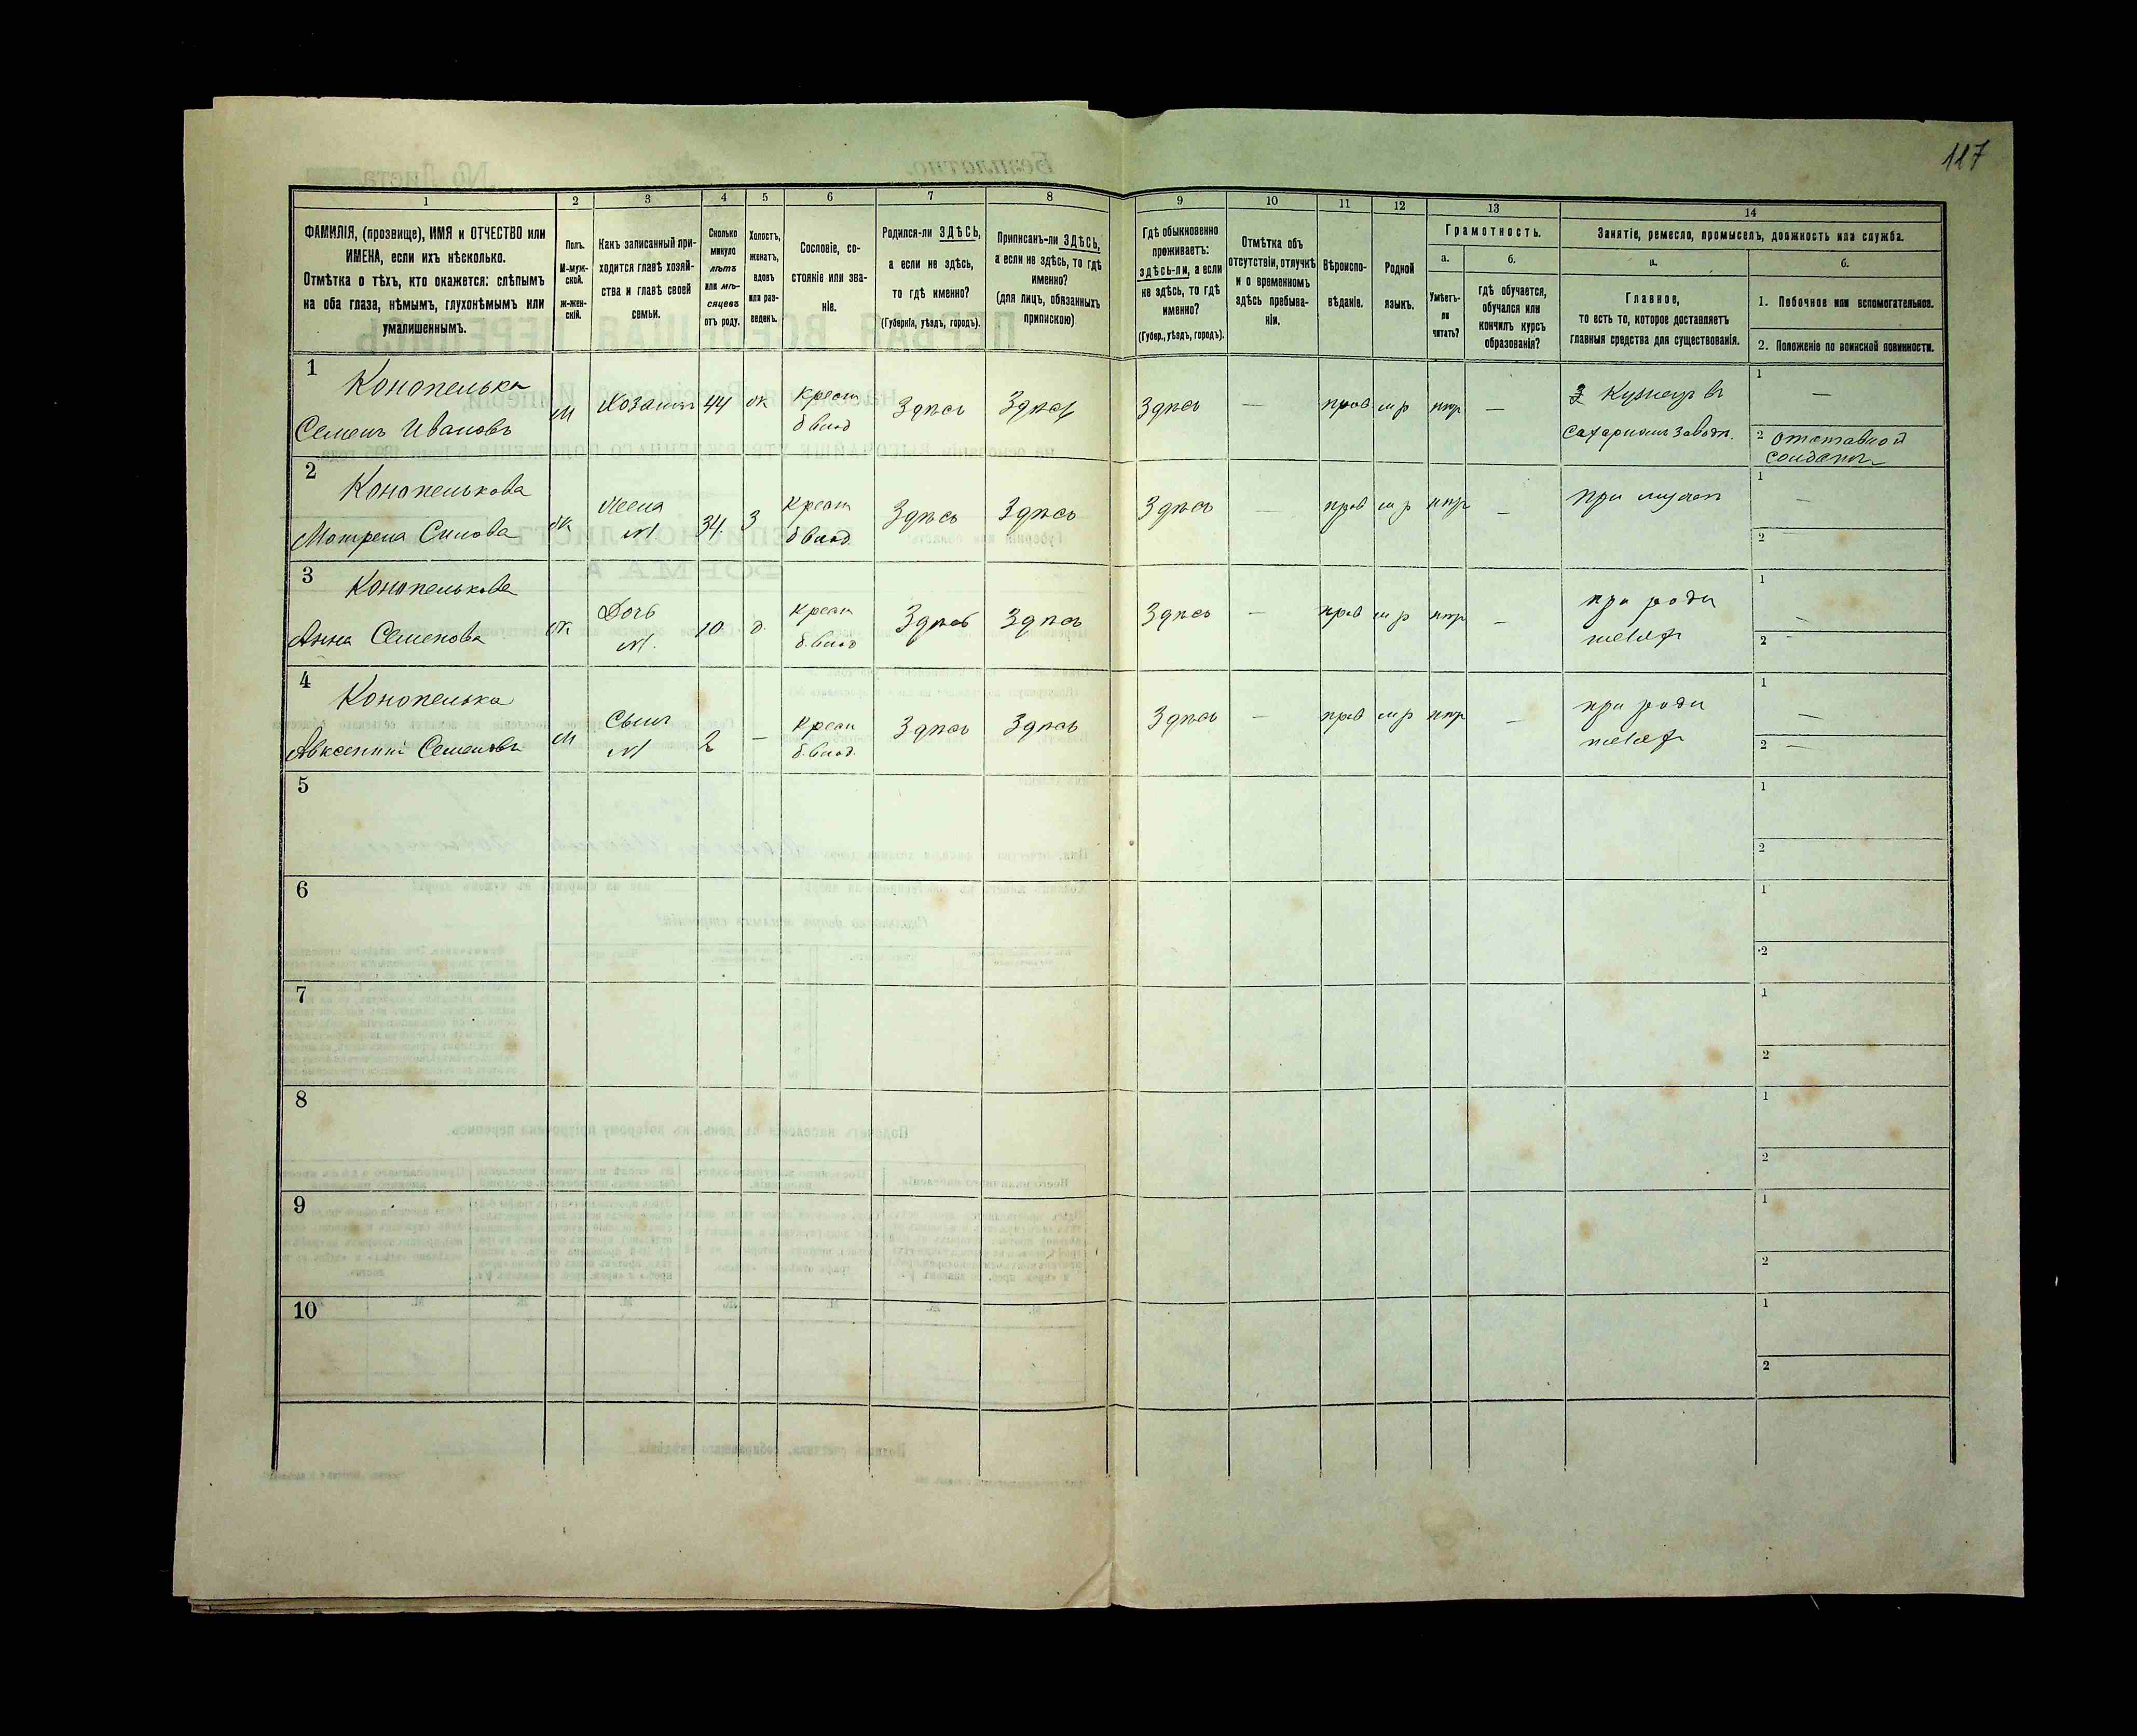 117
1
2
3
4
5
6
7
8
9
10
11
12
13
14
ФАМИЛІЯ, (прозвище), ИМЯ и ОТЧЕСТВО или
ИМЕНА, если ихъ нѣсколько.
Отмѣтка о тѣхъ, кто окажется: слѣпымъ
на оба глаза, нѣмымъ, глухонѣмымъ или
умалишеннымъ.
Полъ.
М-муж-
ской.
ж-жен-
скій.
Какъ записанный при-
ходится главѣ хозяй-
ства и главѣ своей
семьи.
Сколько
минуло
лѣтъ
или мѣ-
сяцевъ
отъ роду.
Холостъ,
женатъ,
вдовъ
или раз-
веденъ.
Сословіе, со-
стояніе или зва-
ніе.
Родился-ли ЗДѢСЬ,
а если не здѣсь,
то гдѣ именно?
(Губернія, уѣздъ, городъ).
Приписанъ-ли ЗДѢСЬ,
а если не здѣсь, то гдѣ
именно?
(для лицъ, обязанныхъ
припискою)
Гдѣ обыкновенно
проживаетъ:
здѣсь-ли, а если
не здѣсь, то гдѣ
именно?
(Губер., уѣздъ, городъ).
Отмѣтка объ
отсутствіи, отлучкѣ
и о временномъ
здѣсь пребыва-
ніи.
Вѣроиспо-
вѣданіе.
Родной
языкъ.
Грамотность.
а.
Умѣетъ-
ли
читать?
б.
гдѣ обучается,
обучался или
кончилъ курсъ
образованія?
Занятіе, ремесло, промыселъ, должность или служба.
а.
Главное,
то есть то, которое доставляетъ
главныя средства для существованія.
б.
1. Побочное или вспомогательное.
2. Положеніе по воинской повинности.
1
Конопелька
Семенъ Ивановъ
м
Хозяинъ
44
ж
Крест
б влад
Здѣсь
Здѣсь
Здѣсь
—
прав
м р
нтр
—
Кузнецъ въ
Сахарномъ заводѣ.
1
—
2 отставной
солдатъ
2
Конопелькова
Мотрена Силова
ж
Жена
м
34.
з
Крест
б влад.
Здѣсь
Здѣсь
Здѣсь
—
прав
м р
нтр
—
при мужѣ
1
—
2
3
Конопелькова
Анна Семенова
ж
Дочь
м.
10.
д.
Крест
б. влад
Здѣсь
Здѣсь
Здѣсь
—
прав
м р
нтр
—
при роди
теляхъ
1
—
2 —
4
Конопелька
Авксентій Семеновъ
м
Сынъ
м
2
—
Крест
б. влад.
Здѣсь
Здѣсь
Здѣсь
—
прав
м р
нтр
—
при роди
теляхъ
1
—
2 —
5
1
2
6
1
2
7
1
2
8
1
2
9
1
2
10
1
2